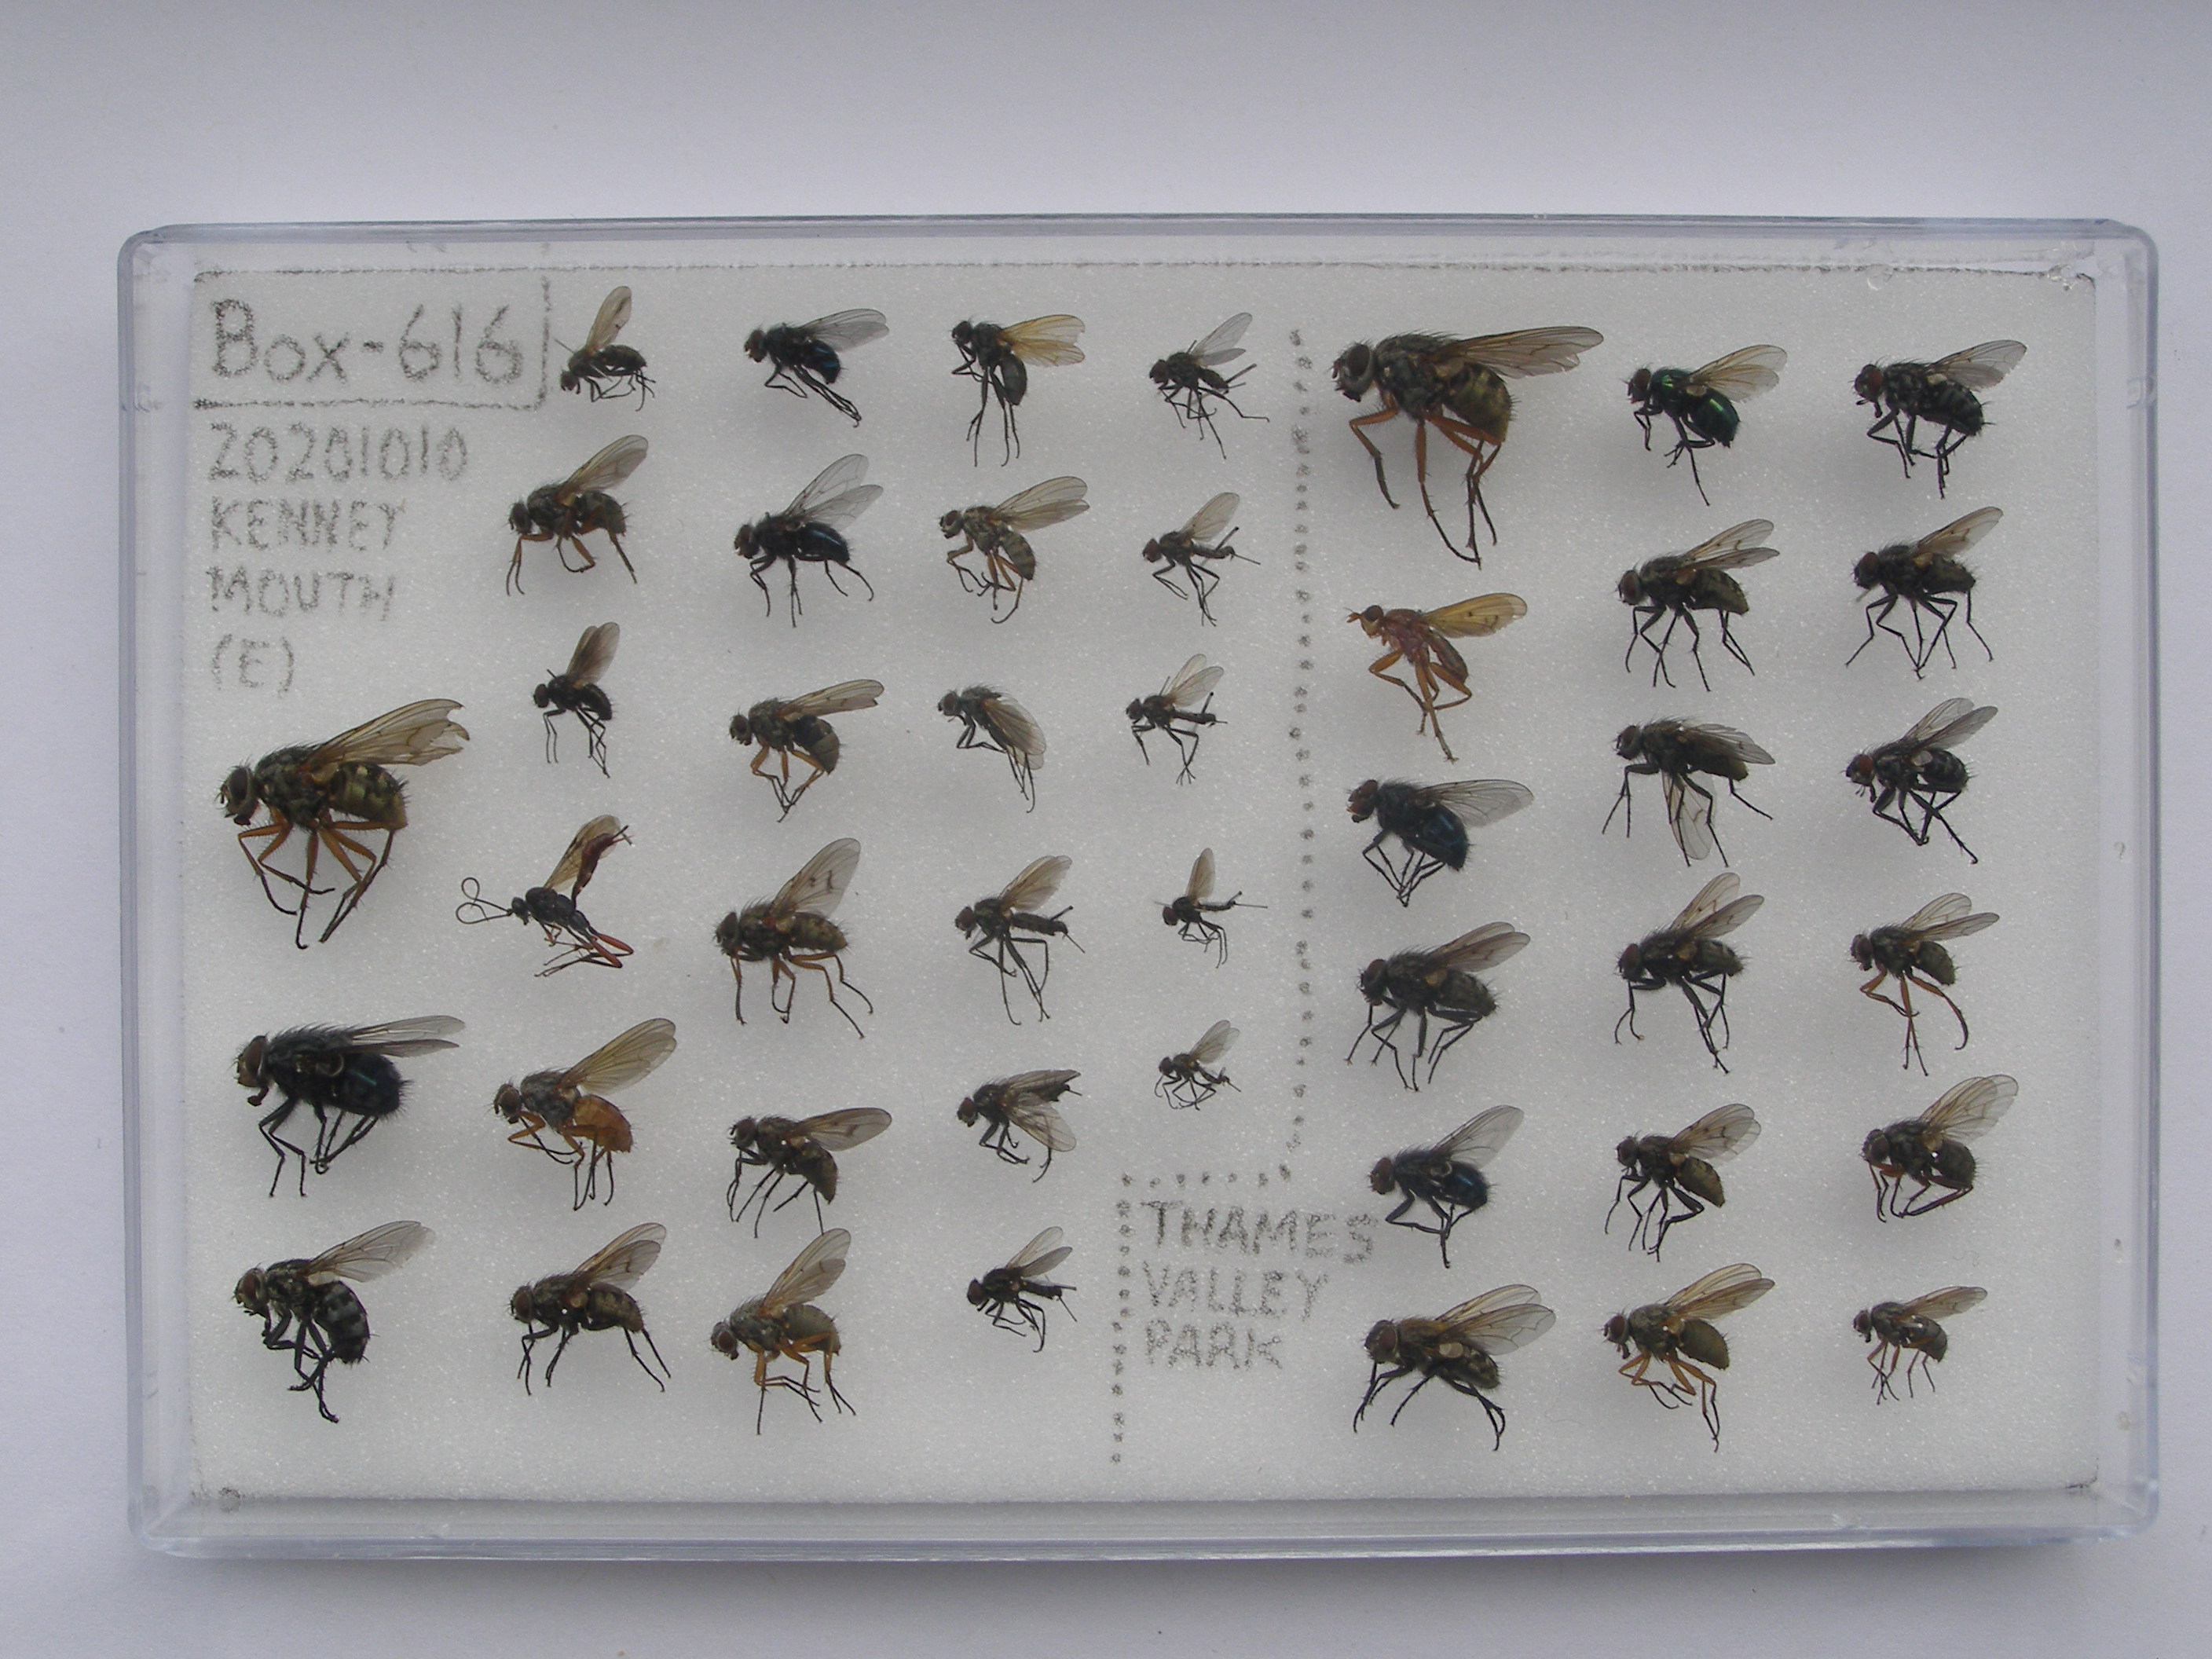 Box-616
20201010
KENNET
MOUTH
(E)
THAMES
VALLEY
PARK